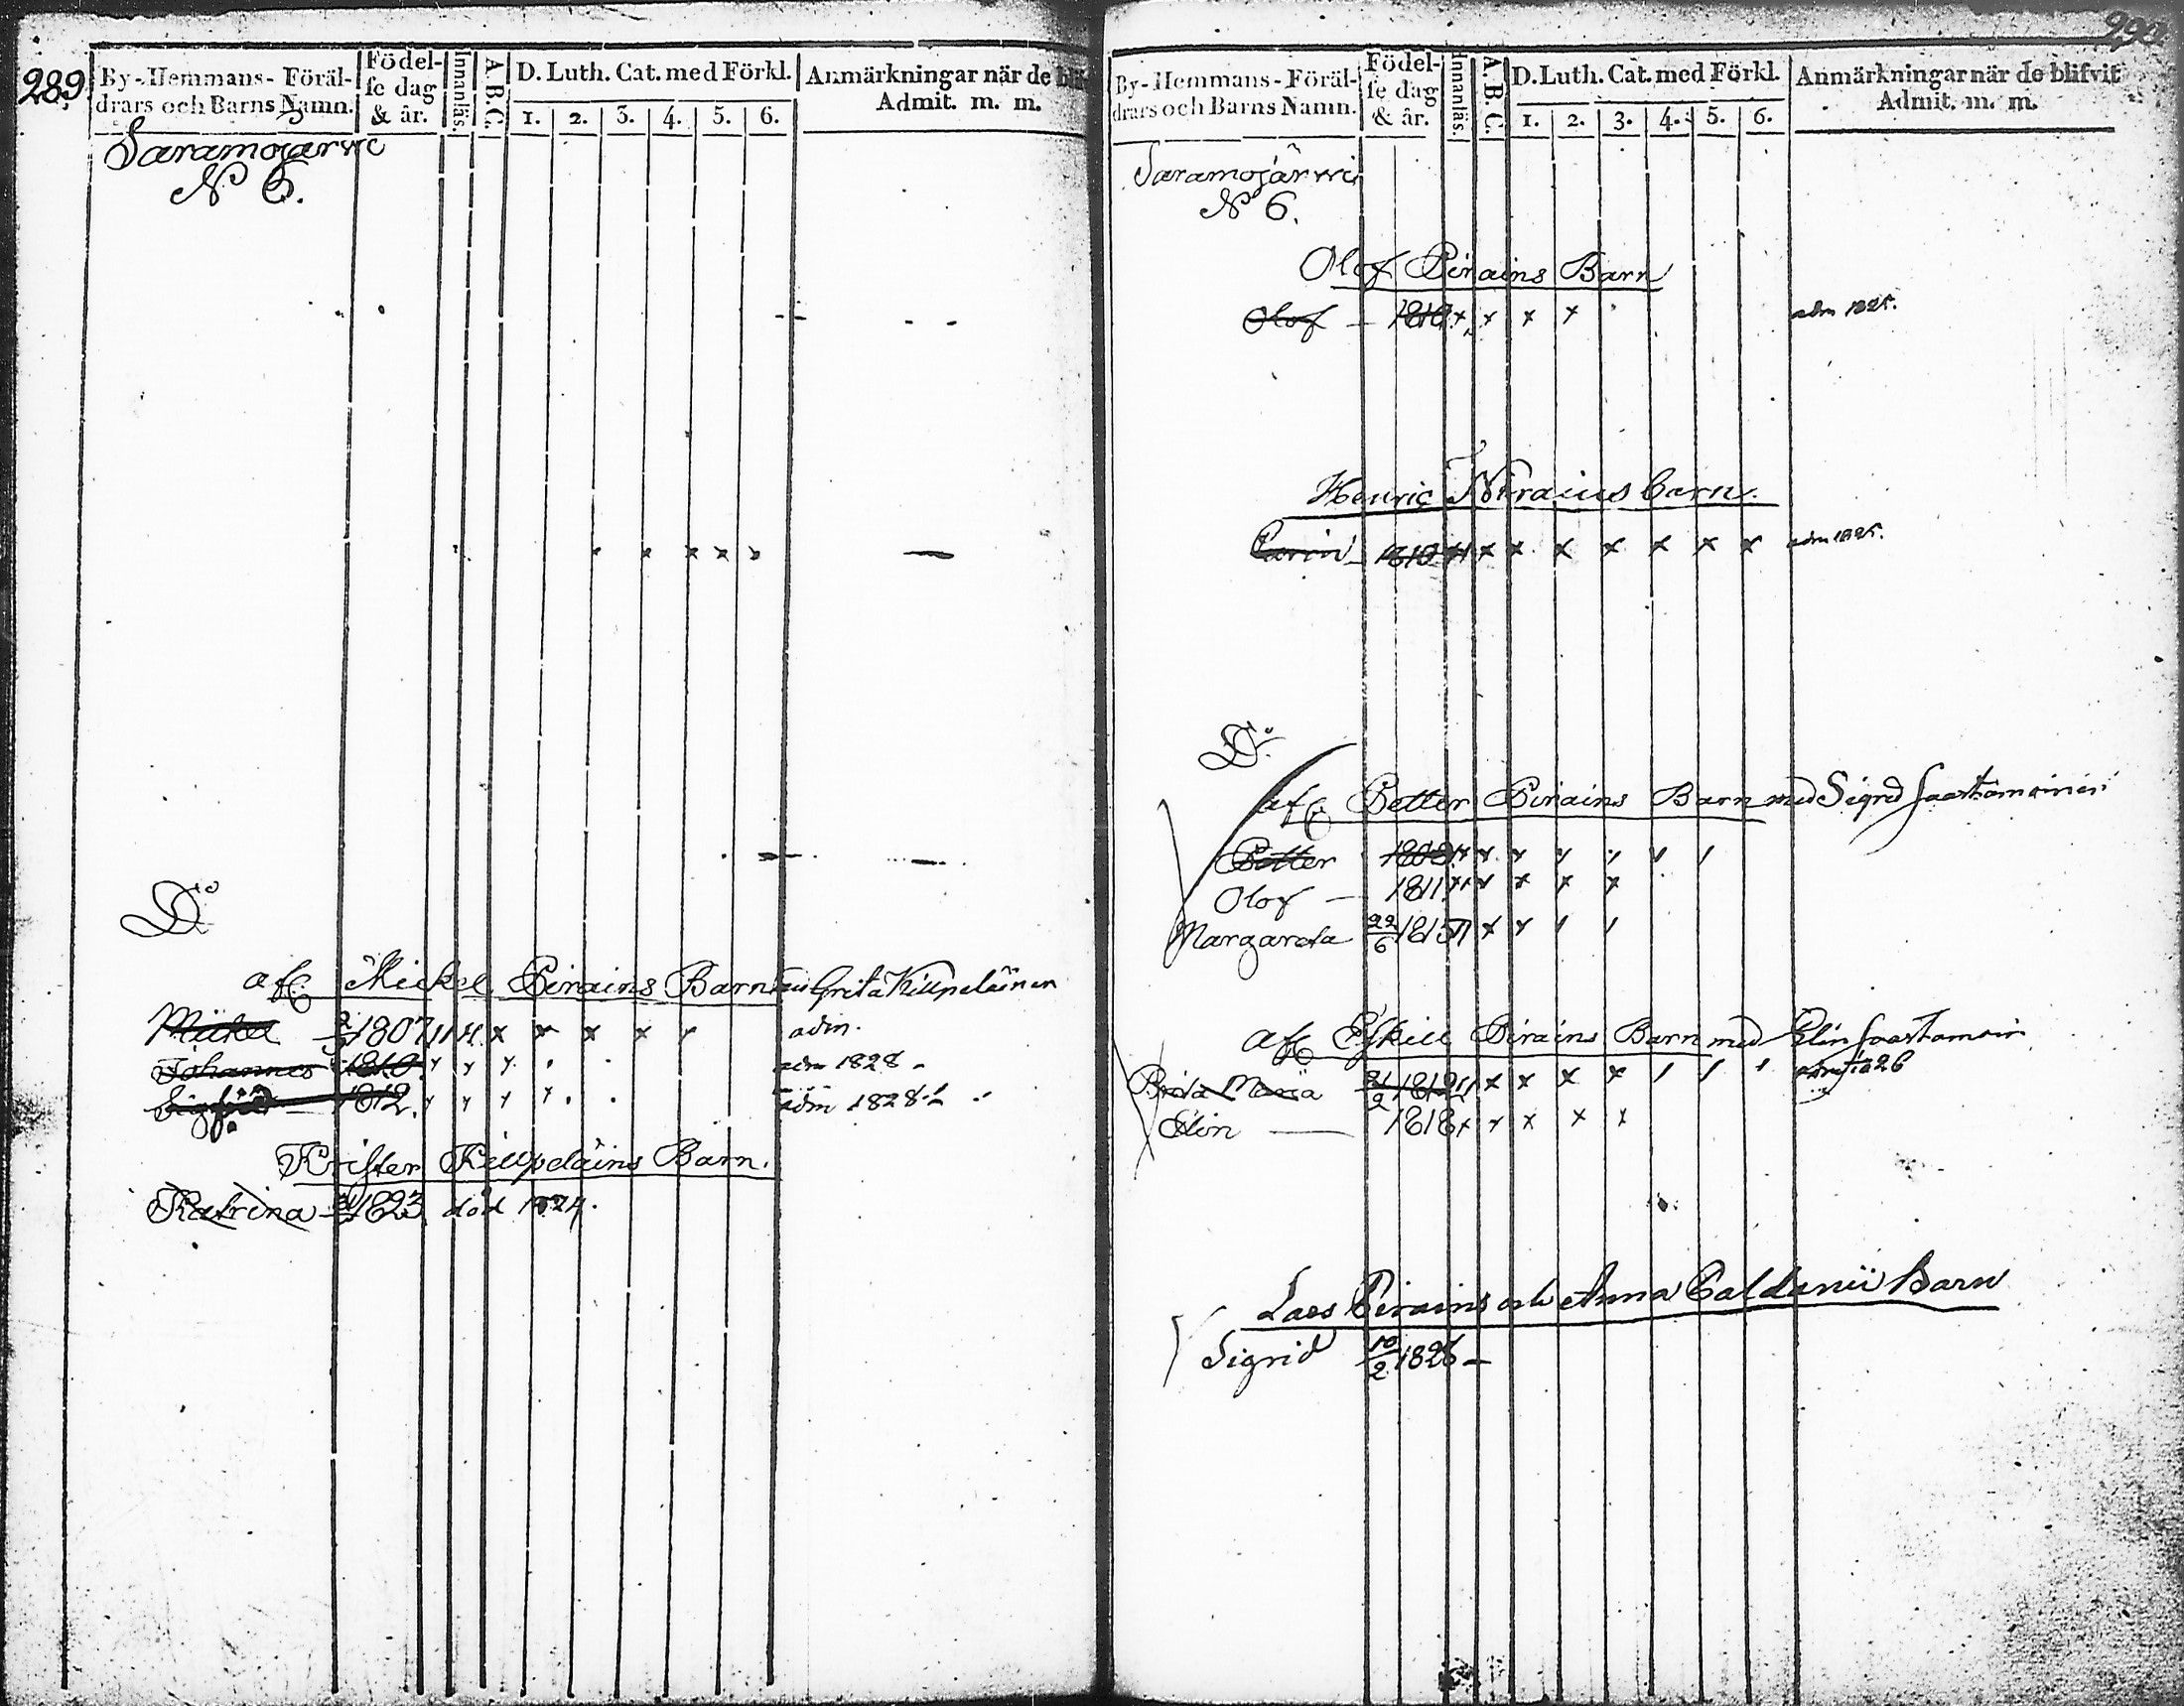 289
By-Hemmans-Föräl-
drars och Barns Namn.
Födel-
se dag
& år.
Innanläs.
A. B. C.
D. Luth. Cat. med Förkl.
1. 2. 3. 4. 5. 6.
Anmärkningar när de
Admit. m. m.
Saramojärwi
N 6.
Do
af Mickel Pirains Barn Greta Kilpeläinen
Mickel 1807 x x x x adm.
Johannes 1810 adm 1828
Sigfrid 1812. adm 1828
Krister Kilpeläins Barn.
Katrina 1823 död 1824.
290
By-Hemmans-Föräl-
drars och Barns Namn.
Födel-
se dag
& år.
Innanläs.
A. B. C.
D. Luth. Cat. med Förkl.
1. 2. 3. 4. 5. 6.
Anmärkningar när de blifvit
Admit. m. m.
Saramojärwi
N 6.
Olof Pirains Barn
Olof – 1810 x x x x adm 1825.
Henric Pirains barn.
Carin – 1810 x x x x x x x x adm 1825.
Do
af Petter Pirains Barn med Sigrid Saastamoinen
Petter
Olof — 1811 x x x x x
Margareta 22/6 1815
af Eskill Pirains Barn med Elin Saastamoin
Brita Maria 1812 x x x x
Elin — 1818 x x x x x
Lars Pirains och Anna Barn
Sigrid 10/2 1826 –